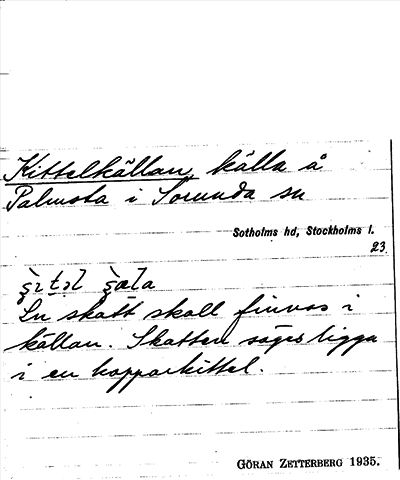 Kittelkällan, källa å
Palmsta i Sorunda sn
Sotholms hd, Stockholms l.
23.
En skatt skall finnas i
källan. Skatten säges ligga
i en kopparkittel.
GÖRAN ZETTERBERG 1935.